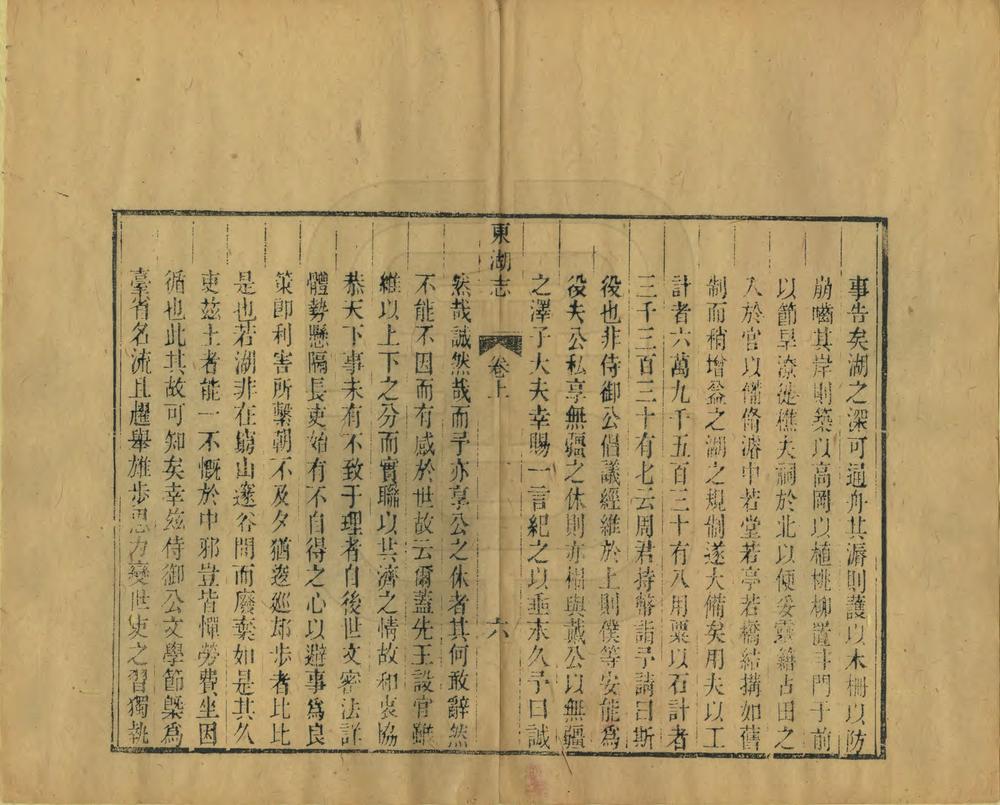 事告矣湖之深可通舟其漘則護以木柵以防
崩嚙其岸則築以高岡以植桃柳置斗門于前
以節旱潦徙樵夫祠於北以便妥靈籍占田之
入於官以備脩濬中若堂若亭若橋結搆如舊
制而稍增益之湖之規制遂大備矣用夫以工
計者六萬九千五百三十有八用粟以石計者
三千三百三十有七云周君持幣詣予請曰斯
役也非侍御公倡議經維於上則僕等安能爲
役夫公私享無疆之休則亦相與戴公以無疆
之澤子大夫幸賜一言紀之以垂永久予曰誠
東湖志
卷上
六
然哉誠然哉而予亦享公之休者其何敢辭然
不能不因而有感於世故云爾蓋先王設官雖
維以上下之分而實聯以共濟之情故和衷協
恭天下事未有不致于理者自後世文密法詳
體勢懸隔長吏始有不自得之心以避事爲良
策卽利害所繫朝不及夕猶逡巡却步者比比
是也若湖非在窮山邃谷間而廢棄如是其久
吏茲土者能一不慨於中邪豈皆憚勞費坐因
循也此其故可知矣幸茲侍御公文學節槩爲
臺省名流且趯舉雄步思力變世吏之習獨執